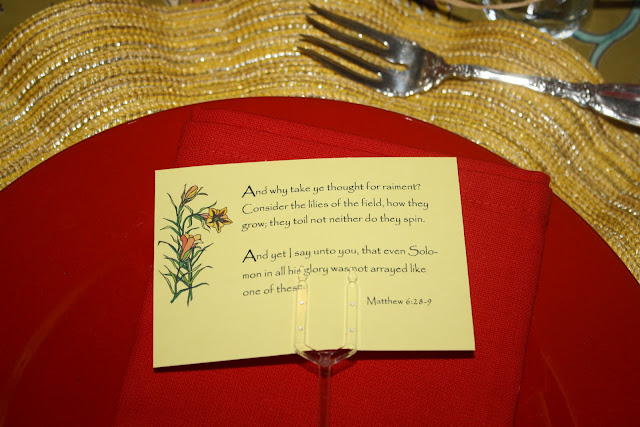 And why take ye thought for raiment?
Consider the lilies of the field, how they
grow; they toil not neither do they spin.
And yet I say unto you, that even Solo-
mon in all his glory was not arrayed like
one of these.
Matthew 6:28-9